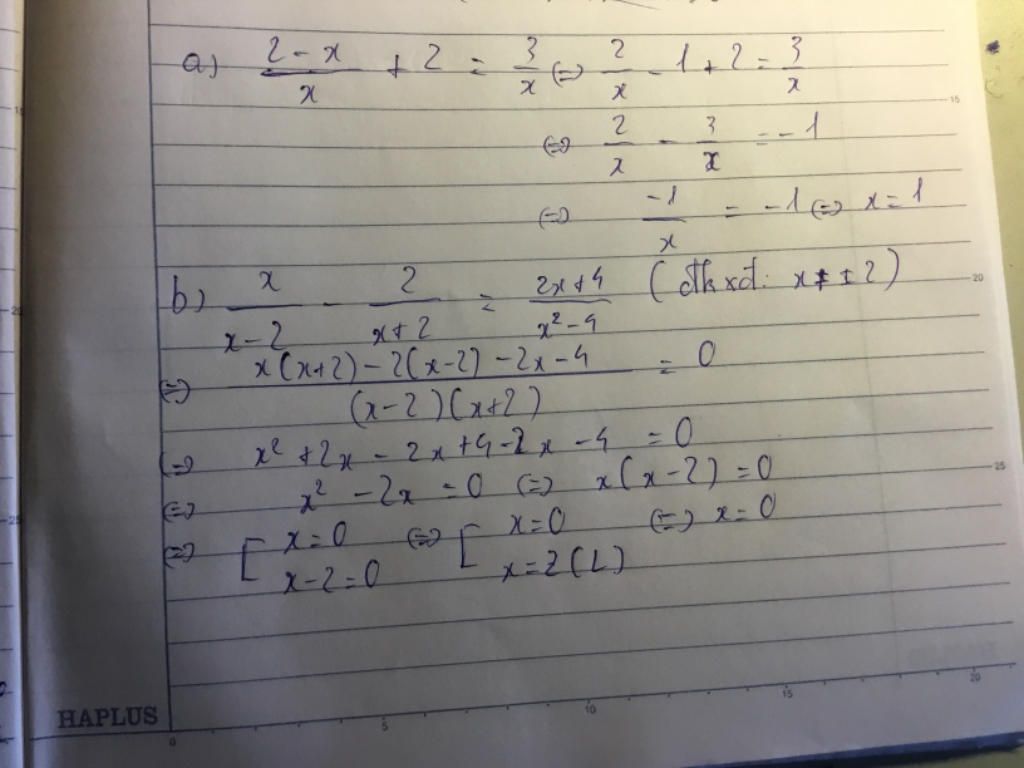 a) (2-x)/x + 2 = 3/x ⇔ 2/x - 1 + 2 = 3/x
15
⇔ 2/x - 3/x = -1
⇔ -1/x = -1 ⇔ x = 1
b) x/(x-2) - 2/(x+2) = (2x+4)/(x²-4) (đkxđ: x ≠ ±2)
20
⇔ (x(x+2) - 2(x-2) - 2x - 4)/((x-2)(x+2)) = 0
⇔ x² + 2x - 2x + 4 - 2x - 4 = 0
⇔ x² - 2x = 0 ⇔ x(x-2) = 0
25
⇔ [ x = 0 ⇔ [ x = 0 ⇔ x = 0
x - 2 = 0 x = 2 (L)
HAPLUS
0 5 10 15 20